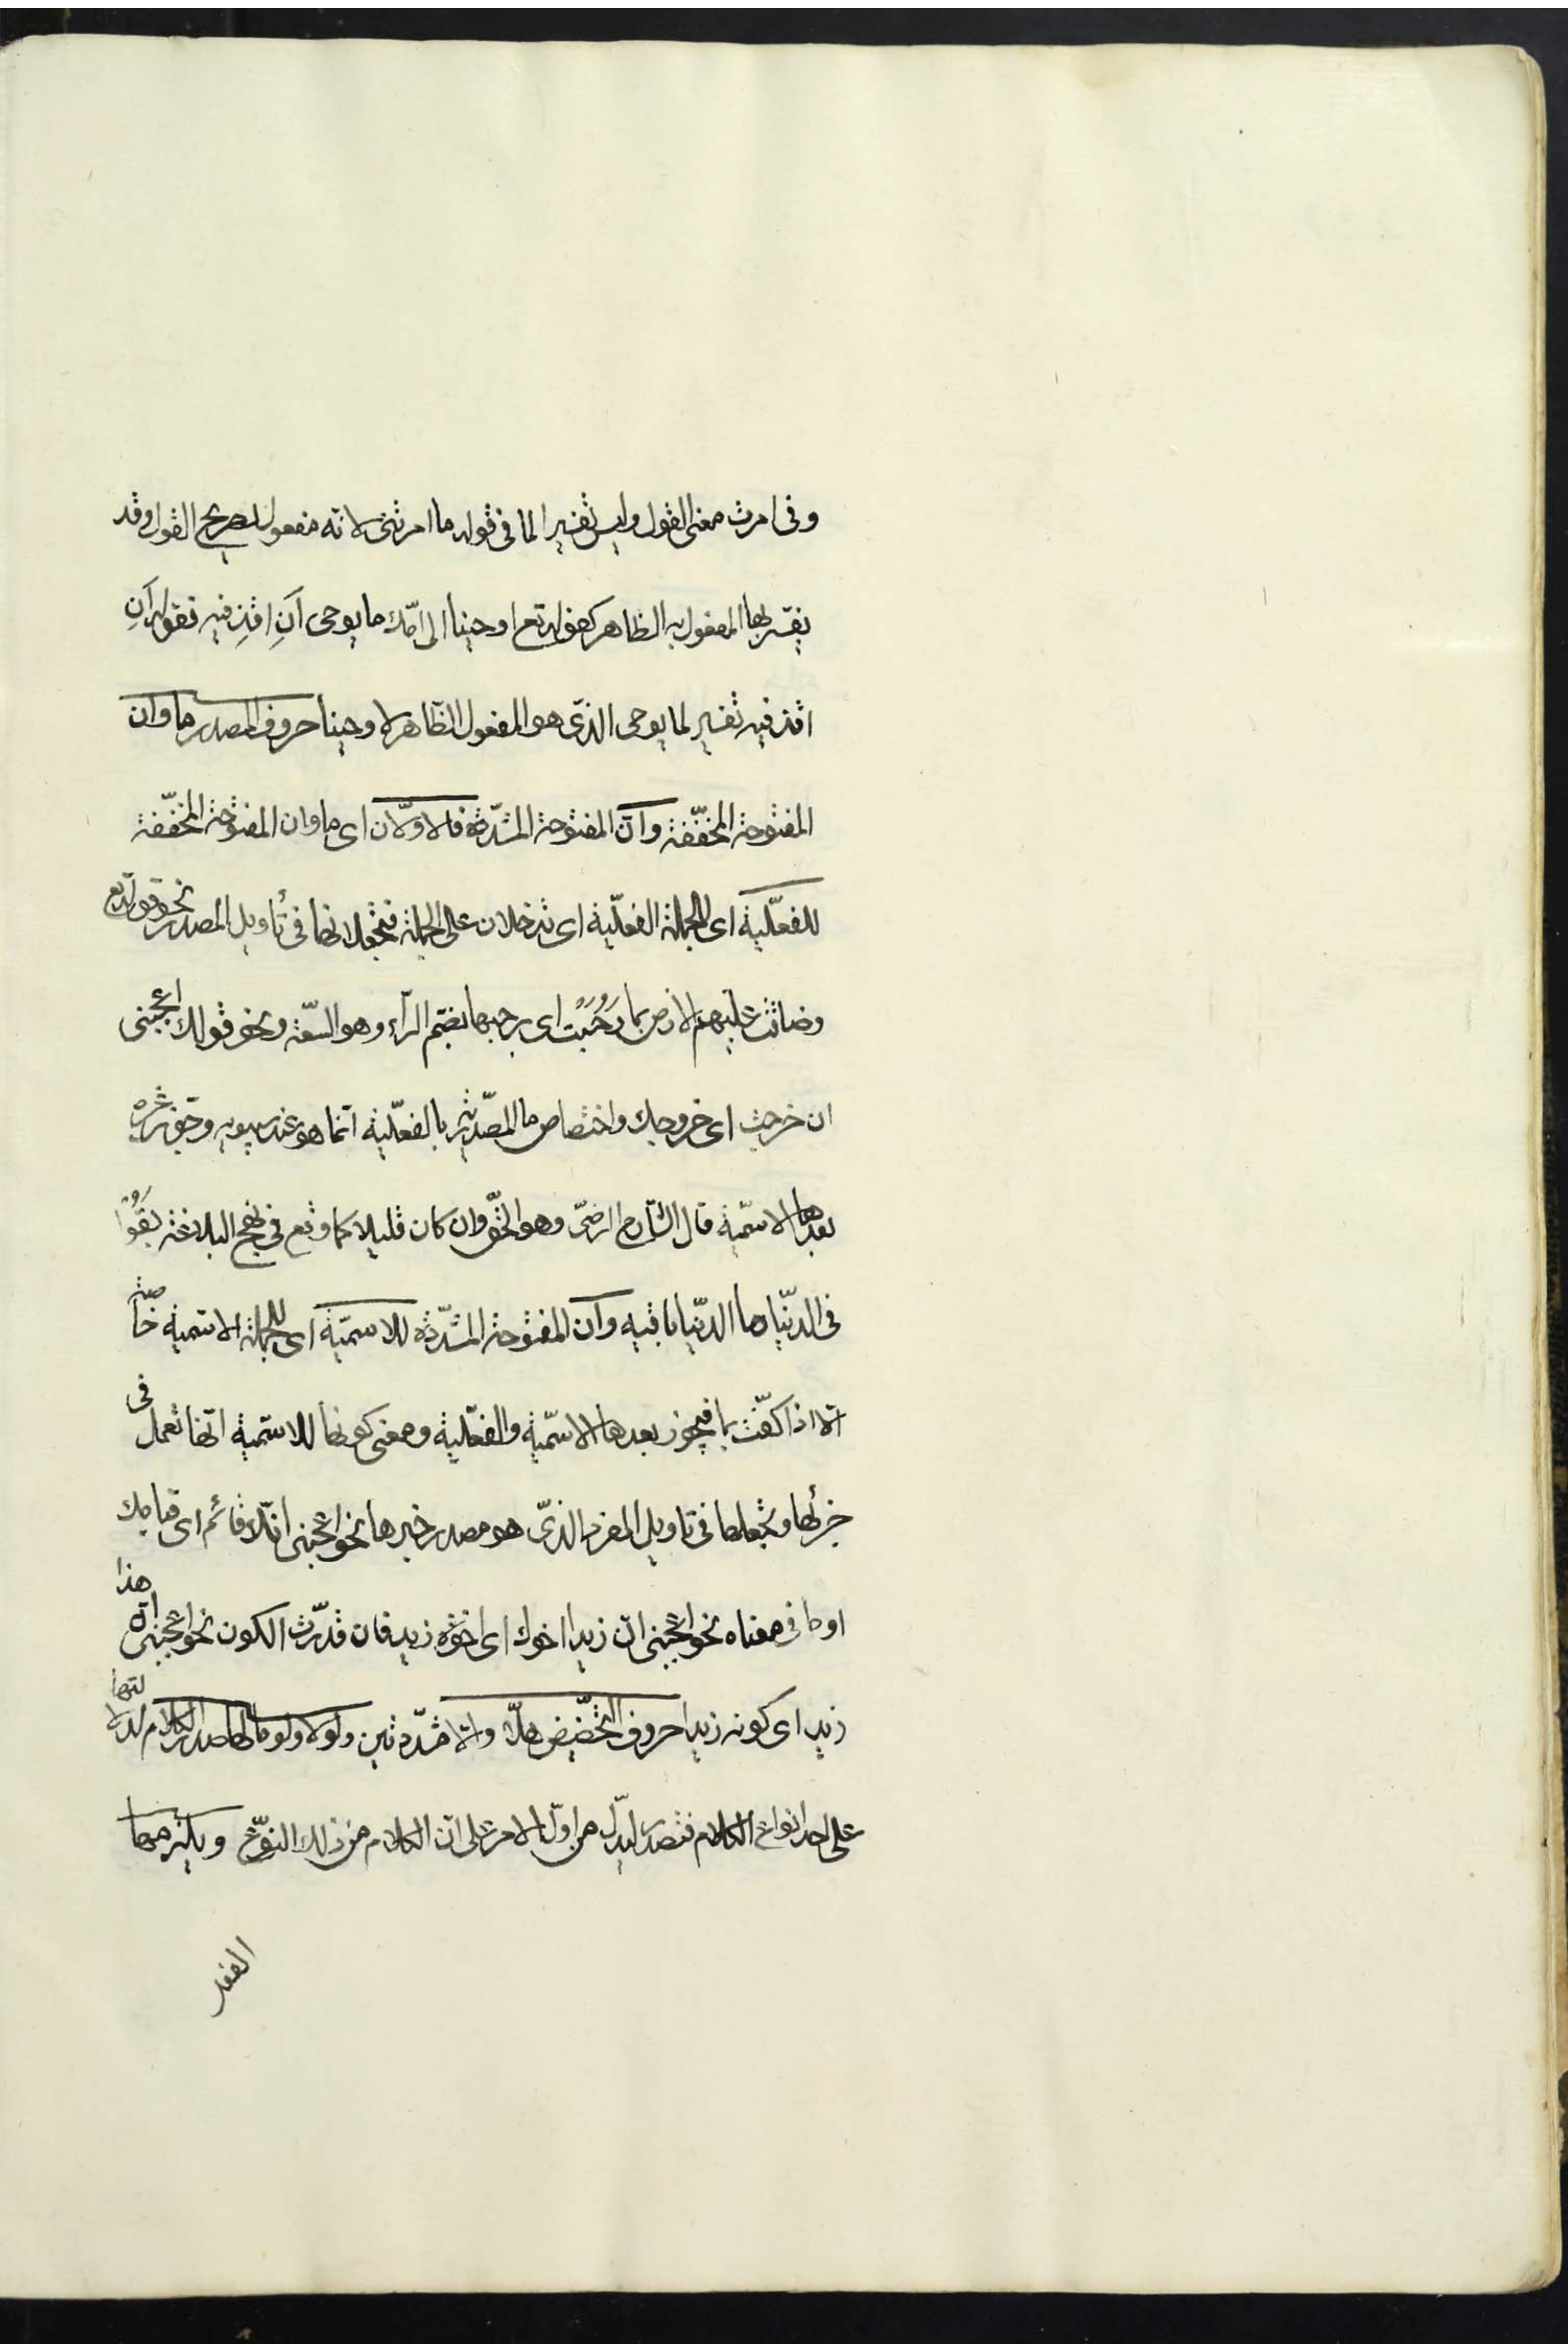 وفى امرت معنى القول وليس تفسيرا لما فى قوله ما امرتنى لانه مفعول لصريح القول وقد
يفسر بها المفعول به الظاهر كقوله تع اوحينا الى امّك ما يوحى اَنِ اقْذِفيه فقوله اَنِ
اقذفيه تفسير لما يوحى الذى هو المفعول الظّاهر لاوحينا حروف المصدر ما وان
المفتوحة المخفّفة وانّ المفتوحة المشدّدة فالاوّلان اى ما وان المفتوحة المخفّفة
للفعليّة اى للجملة الفعليّة اى تدخلان على الجملة فتجعلانها فى تأويل المصدر نحو قوله تع
وضاقت عليهم الارض بما رَحُبَت اى برحبها بضم الرّاء وهو السّعة ونحو قولك اعجبنى
ان خرجت اى خروجك واختصاص ما المصدّيّة بالفعليّة انّما هو عند سيبويه وجوّز غيره
بعدها الاسميّة قال الشّارح الرضىّ وهو الحقّ وان كان قليلا كما وقع فى نهج البلاغة بَقُوا
فى الدنيا ما الدنيا باقيه وانّ المفتوحة المشدّدة للاسميّة اى للجملة الاسميّة خاصّة
الّا اذا كفّت بما فيجوز بعدها الاسميّة والفعليّة ومعنى كونها للاسميّة انّها تعمل فى
جزئها وتجعلها فى تاويل المفرد الذى هو مصدر خبرها نحو اعجبنى انّك قائم اى قيامك
او ما فى معناه نحو اعجبنى انّ زيدا اخوك اى اخوّة زيد فان قدّرت الكون نحو اعجبنى انّ هذا
زيد اى كونه زيدا حروف التحضيض هلّا والّا مشدّدتين ولولا ولوما لها صدر الكلام لدلالتها
على احد انواع الكلام فتصدر ليدلّ من اوّل الامر على انّ الكلام من ذلك النّوع ويلزمها
الفعل